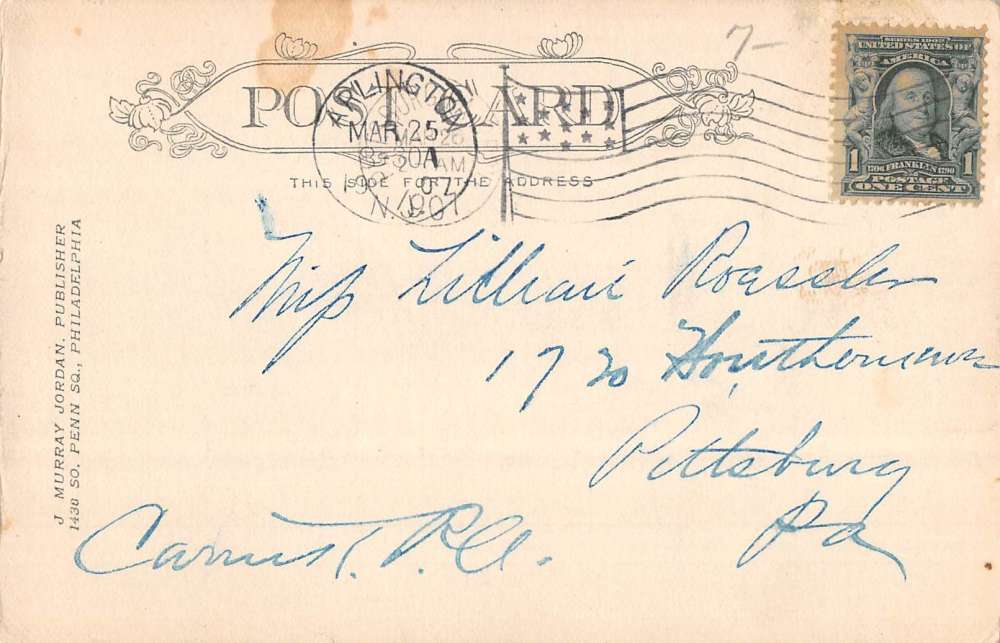 7-
POST CARD
THIS SIDE FOR THE ADDRESS
ARLINGTON
MAR 25
8-30A
1907
N.J.
SERIES 1902
UNITED STATES OF
AMERICA
1 1706 FRANKLIN 1790 1
POSTAGE
ONE CENT
J MURRAY JORDAN, PUBLISHER
1438 SO. PENN SQ., PHILADELPHIA
Miss Lillian Roessler
1720
Pittsburg
Pa